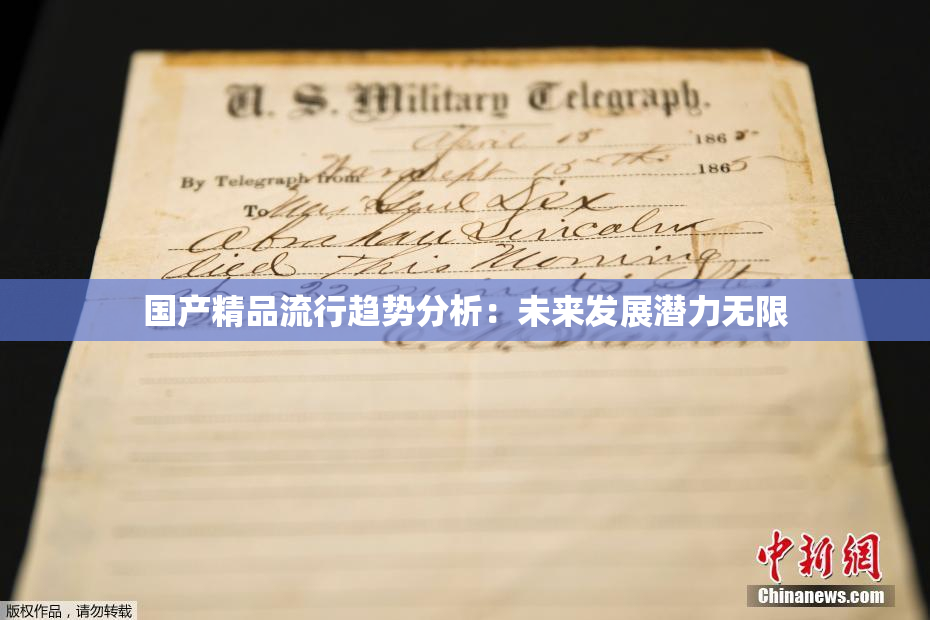 U. S. Military Telegraph.
April 15 1865
By Telegraph from War Dept 15 1865
To Maj Genl Dix
Abraham Lincoln
died This Morning
22 minutes after
国产精品流行趋势分析：未来发展潜力无限
E. M. Stanton
中新網
Chinanews.com
版权作品，请勿转载